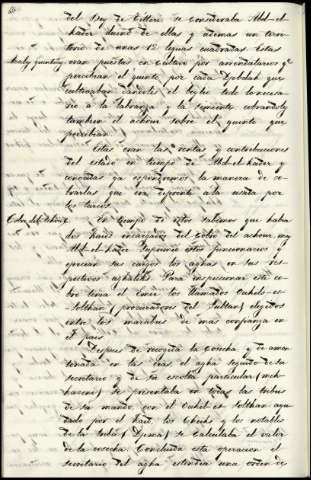 del Bey de Titteri se consideraba Abd-el-
Kader dueño de ellas y ademas un terri-
torio de unas 12 leguas cuadradas. Estas
eran puestas en cultivo por arrendatarios qe
percibian el quinto por cada Djebdah que
cultivaban dandoles el beylic todo lo necesa-
rio a la labranza y la simiente cobrandoles
tambien el achour sobre el quinto que
percibian.
Estas eran las rentas y contribuciones
del estado en tiempo de Abd-el-Kader y
conocidas ya espondremos la manera de co-
brarlas que era distinta a la usada por
los turcos.
Cobro del Achour
En tiempo de estos sabemos que habia
dos Kaids encargados del cobro del achour, mas
Abd-el-Kader suprimió estos funcionarios y
ejercian sus cargos los aghas en sus res-
pectivos aghaliks. Para inspeccionar este co-
bro tenia el Emir los llamados Oukils-es-
Solthan (procuradores del Sultan) elegidos
entre los marabus de mas confianza en
el pais.
Despues de recogida la cosecha y de amon-
tonada en las eras el agha seguido de su
secretario y de su escolta particular (mek-
hazeni) se presentaba en todas las tribus
de su mando, con el Oukil es Solthan ayu-
dado por el Kaid, los Cheiks y los notables
de la tribu (Djemâ) se calculaba el valor
de la cosecha. Concluida esta operacion el
secretario del agha estendia una orden de